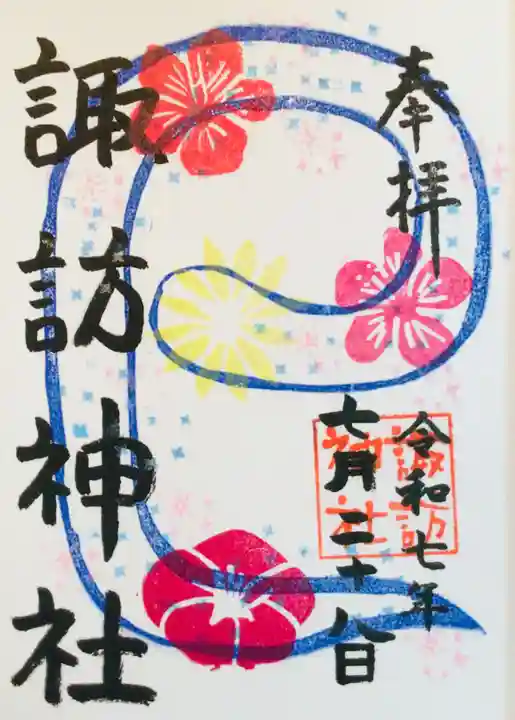 奉拝
令和七年
七月二十八日
諏訪神社
諏訪
神社